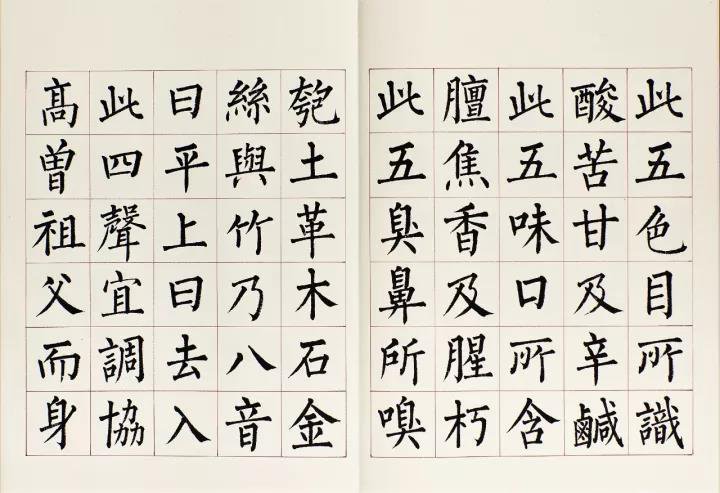 此五色目所識
酸苦甘及辛鹹
此五味口所含
膻焦香及腥朽
此五臭鼻所嗅
匏土革木石金
絲與竹乃八音
曰平上曰去入
此四聲宜調協
高曾祖父而身